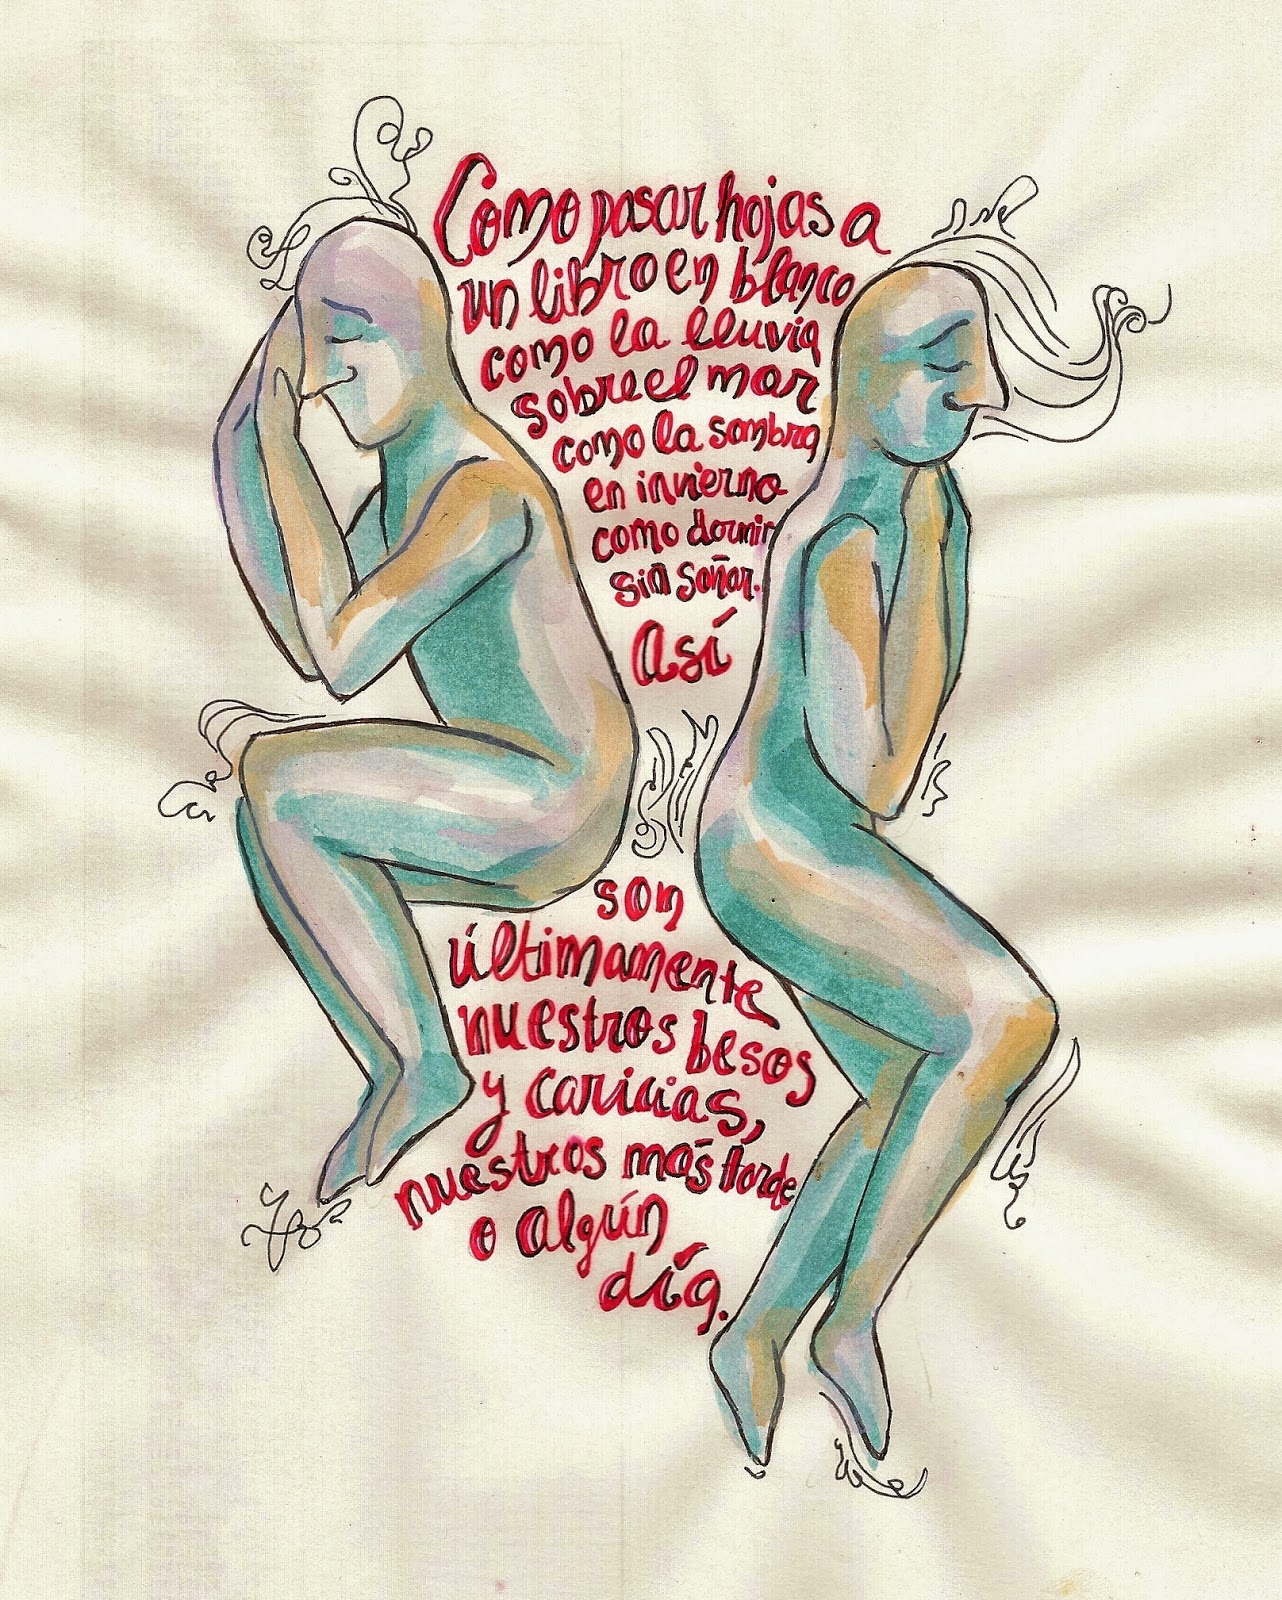 Como pasar hojas a
un libro en blanco
como la lluvia
sobre el mar
como la sombra
en invierno
como dormir
sin soñar.
Así
son
últimamente
nuestros besos
y caricias,
nuestros más tarde
o algún
día.